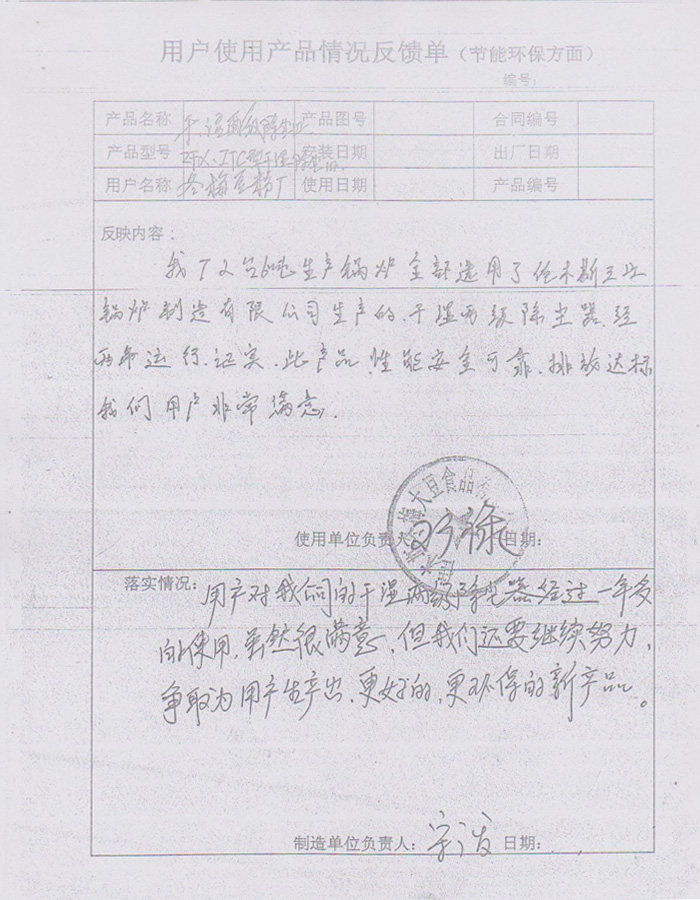 用户使用产品情况反馈单（节能环保方面）
编号：
产品名称 干湿两级除尘 产品图号 合同编号
产品型号 安装日期 出厂日期
用户名称 冬梅豆粉厂 使用日期 产品编号
反映内容：
我厂2台6吨生产锅炉全部选用了佳木斯
锅炉制造有限公司生产的、干湿两级除尘器、经
两年运行、证实、此产品、性能安全可靠、排放达标
我们用户非常满意.
大豆食品
使用单位负责人 日期：
落实情况：用户对我公司的干湿两级除尘器经过一年多
的使用，虽然很满意、但我们还要继续努力、
争取为用户生产出、更好的，更环保的新产品。
制造单位负责人： 日期：